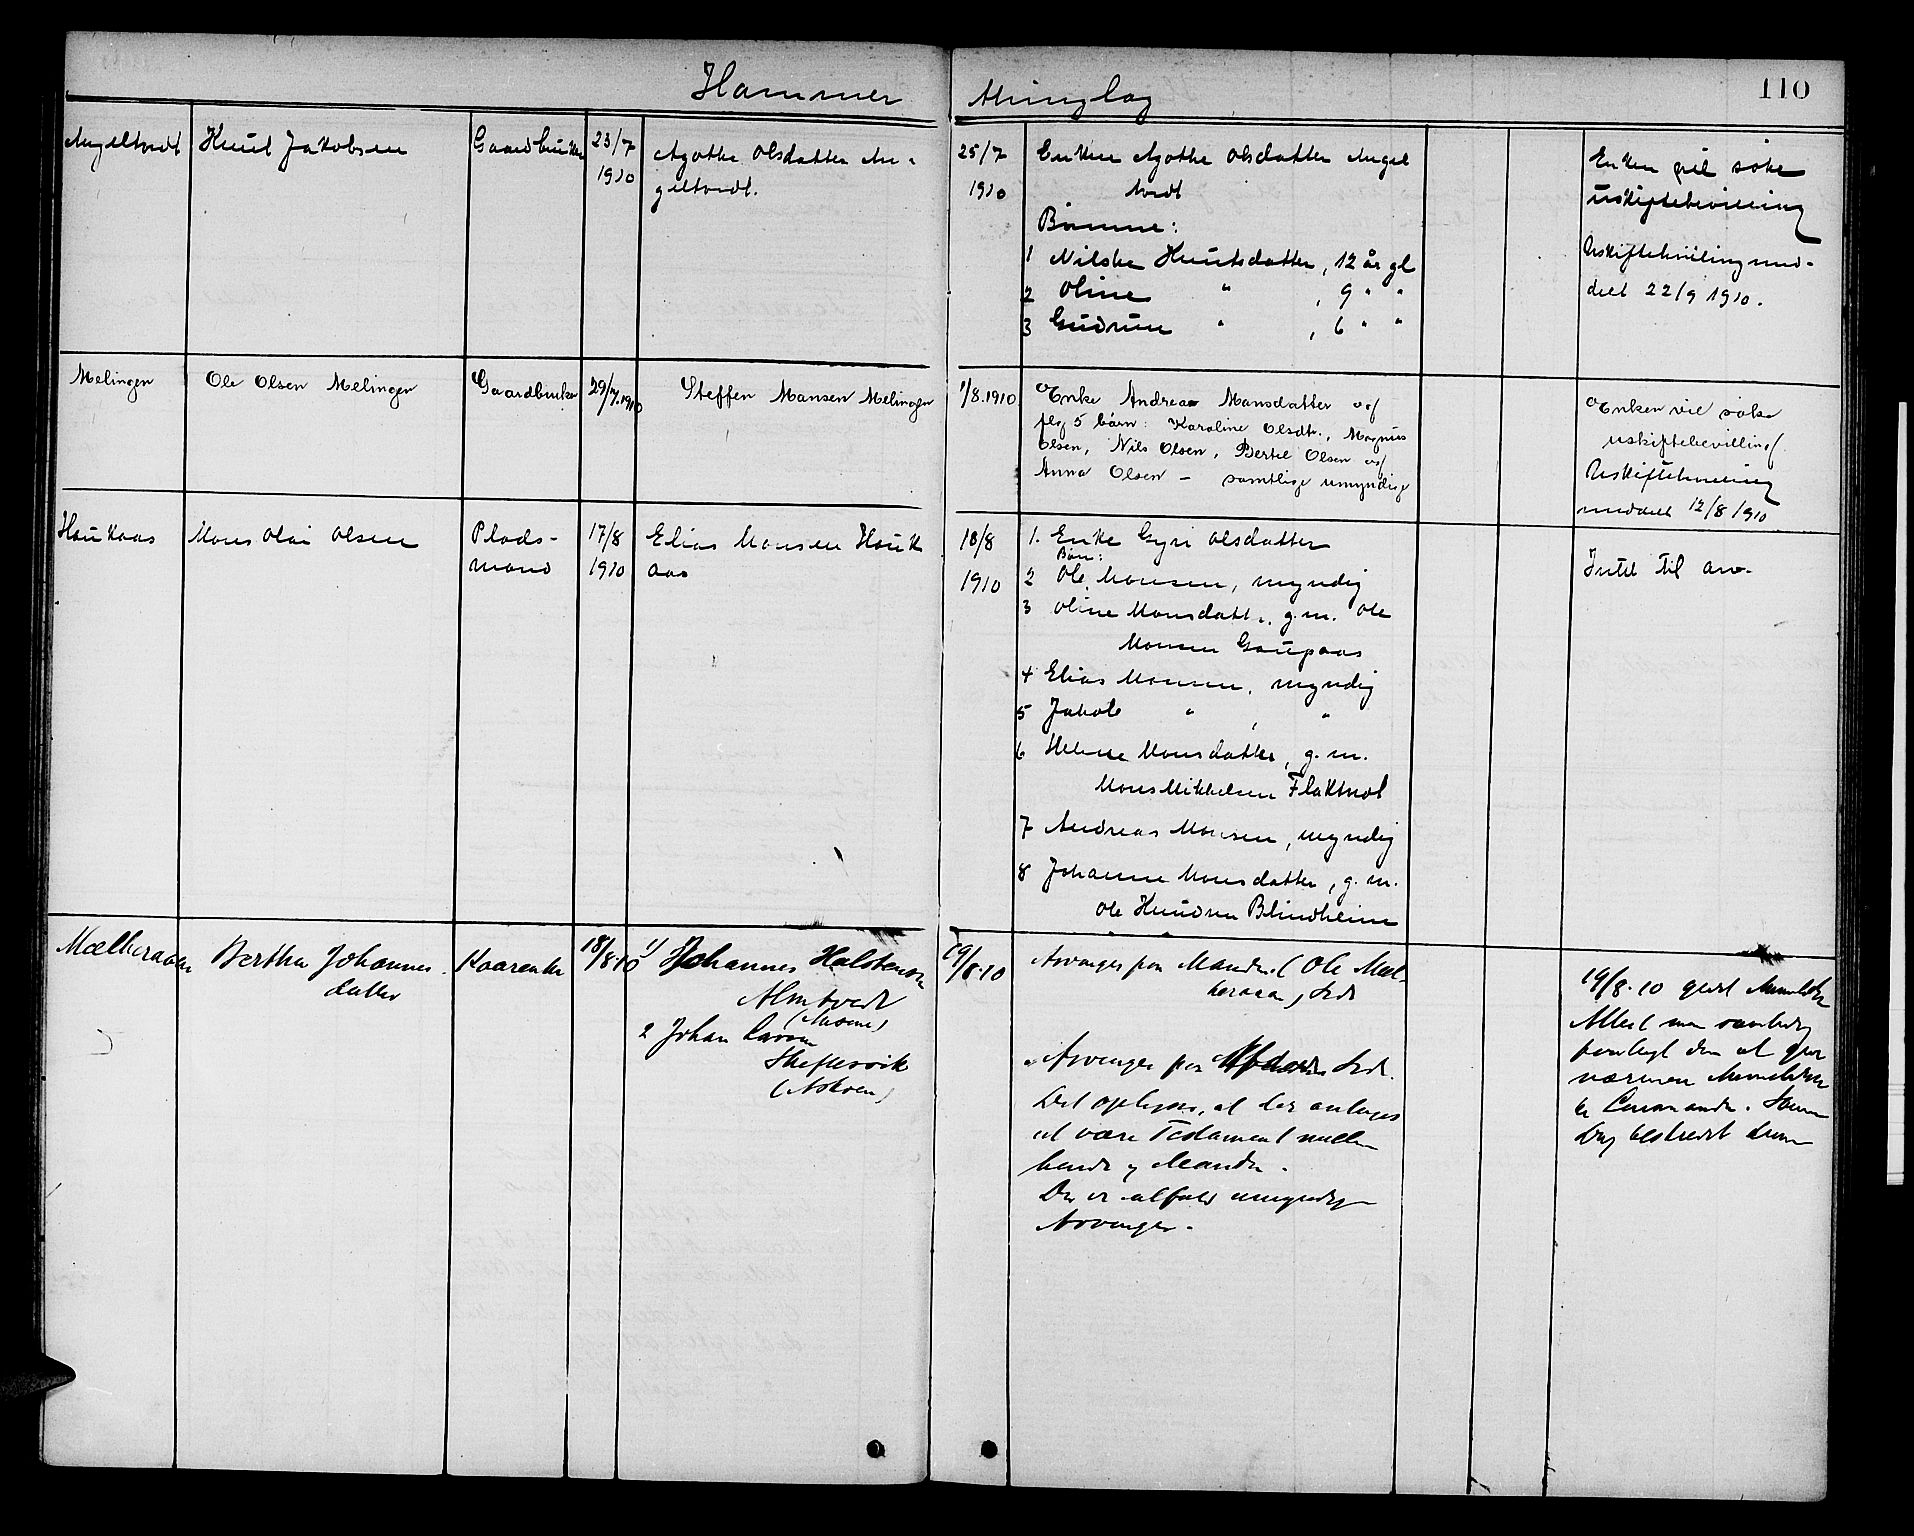 110
Hammer Thinglag
Angeltvedt
Knut Jakobsen
Gaardbruker
23/7
1910
Agathe Olsdatter An-
geltvedt.
25/7
1910
Enken Agathe Olsdatter Angel
tvedt
Børnene:
1 Nilske Knutsdatter, 12 år gl
2 Oline " , 9 " "
3 Gudrun " , 6 " "
Enken vil søke
uskiftebevilling
Uskiftebevilling med-
delt 22/9 1910.
Melingen
Ole Olsen Melingen
Gaardbruker
29/7.1910
Steffen Mansen Melingen
1/8.1910
Enke Andrea Mansdatter og
flg 5 børn: Karoline Olsdtr., Magnus
Olsen, Nils Olsen, Bertel Olsen og
Anna Olsen – samtlige umyndige
Enken vil søke
uskiftebevilling.
Uskiftebevilling
meddelt 12/8 1910
Houkaas
Mons Olai Olsen
Plads-
mand
17/8
1910
Elias Monsen Houk
aas
18/8
1910
1. Enke Gyri Olsdatter
Børn:
2 Ole Monsen, myndig
3 Oline Monsdatt., g.m. Ole
Monsen Gaupaas
4 Elias Monsen, myndig
5 Jakob " , "
6 Helene Monsdatter, g. m.
Mons Mikkelsen Flaktveit
7 Andreas Monsen, myndig
8 Johanne Monsdatter, g. m.
Ole Knudsen Blindheim
Intet til arv.
Mælkeraaen
Bertha Johannes-
datter
Kaarenke
18/8.10
1/ Johannes Halstensen
Almtvedt
(Aasene)
2 Johan Larsen
Skeflesvik
(Askøen)
19/8.10
Arvinger fra Manden (Ole Mæl-
keraaen) Sedv
Arvinger fra Sedv.
Det oplyses, at der antages
at være Testament mellem
hende og Manden.
Der er ialfald umyndige
Arvinger.
19/8.10 gjort Anmeldelse